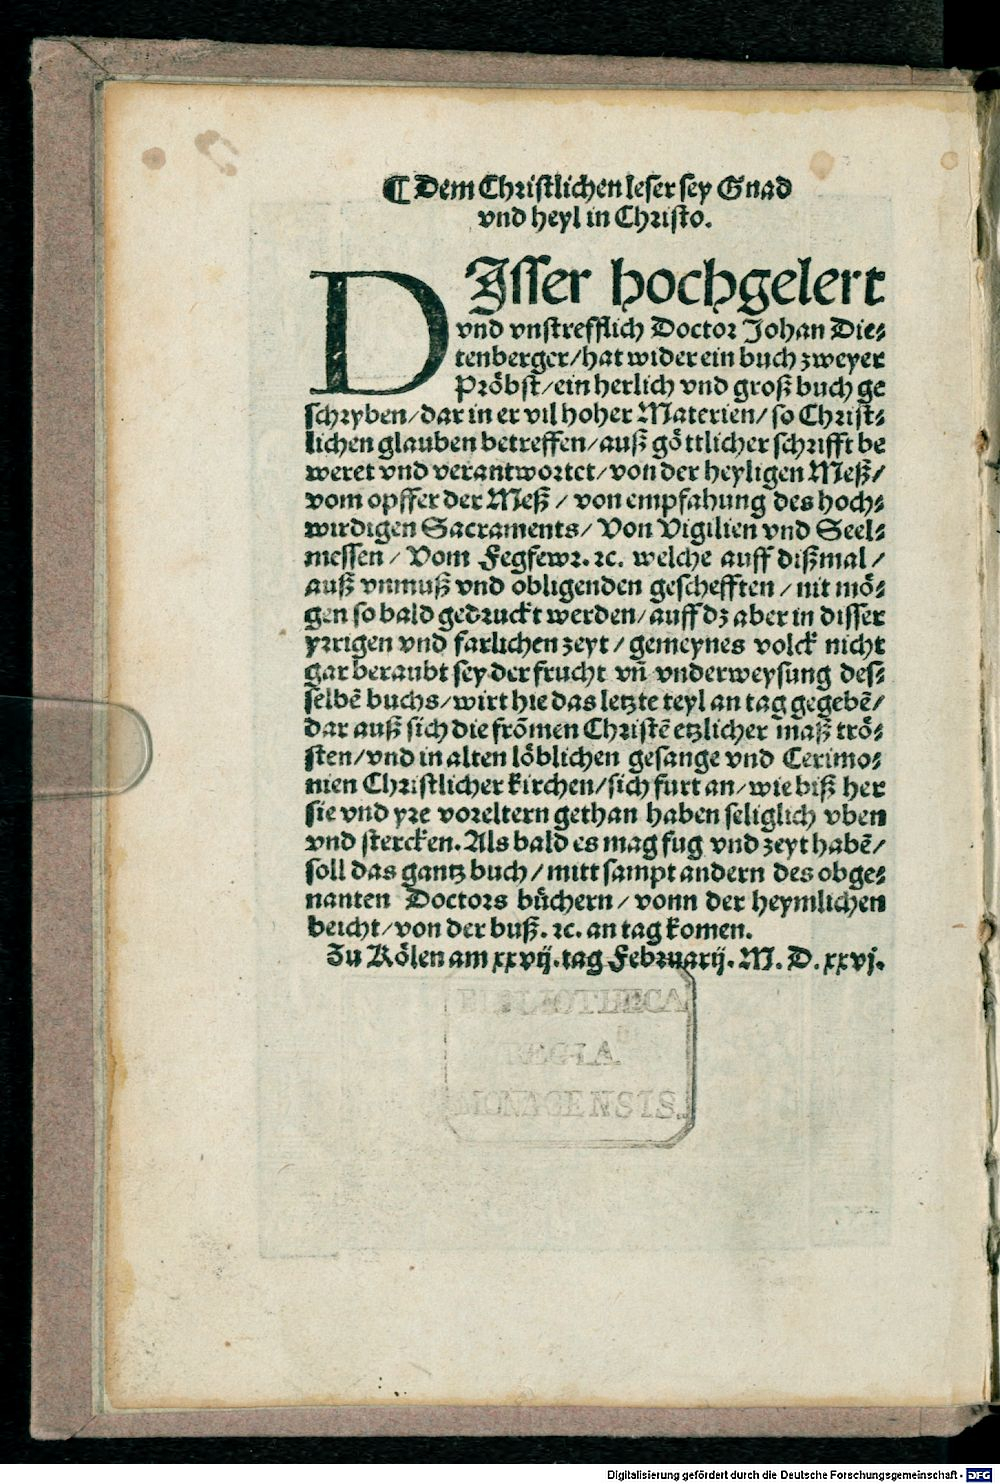 ¶ Dem Christlichen leser sey Gnad
vnd heyl in Christo.
DIsser hochgelert
vnd vnstrefflich Doctor Johan Die⸗
tenberger/hat wider ein buch zweyer
Pröbst/ein herlich vnd groß buch ge
schryben/dar in er vil hoher Materien/so Christ⸗
lichen glauben betreffen/auß göttlicher schrifft be
weret vnd verantwortet/von der heyligen Meß/
vom opffer der Meß/von empfahung des hoch⸗
wirdigen Sacraments/Von Vigilien vnd Seel⸗
messen/Vom Fegfewr.⁊c. welche auff dißmal/
auß vnmuß vnd obligenden geschefften/nit mö⸗
gen so bald gedruckt werden/auff dz aber in disser
yrrigen vnd farlichen zeyt/gemeynes volck nicht
gar beraubt sey der frucht vñ vnderweysung des⸗
selbẽ buchs/wirt hie das letzte teyl an tag gegebẽ/
dar auß sich die frõmen Christẽ etzlicher maß trö⸗
sten/vnd in alten löblichen gesange vnd Cerimo⸗
nien Christlicher kirchen/sich furt an/wie biß her
sie vnd yre voreltern gethan haben seliglich vben
vnd stercken. Als bald es mag fug vnd zeyt habẽ/
soll das gantz buch/mitt sampt andern des obge⸗
nanten Doctors bůchern/vonn der heymlichen
beicht/von der buß.⁊c. an tag komen.
Zu Kölen am xxvij. tag Februarij. M. D. xxvj.
BIBLIOTHECA
REGIA
MONACENSIS.
Digitalisierung gefördert durch die Deutsche Forschungsgemeinschaft - DFG